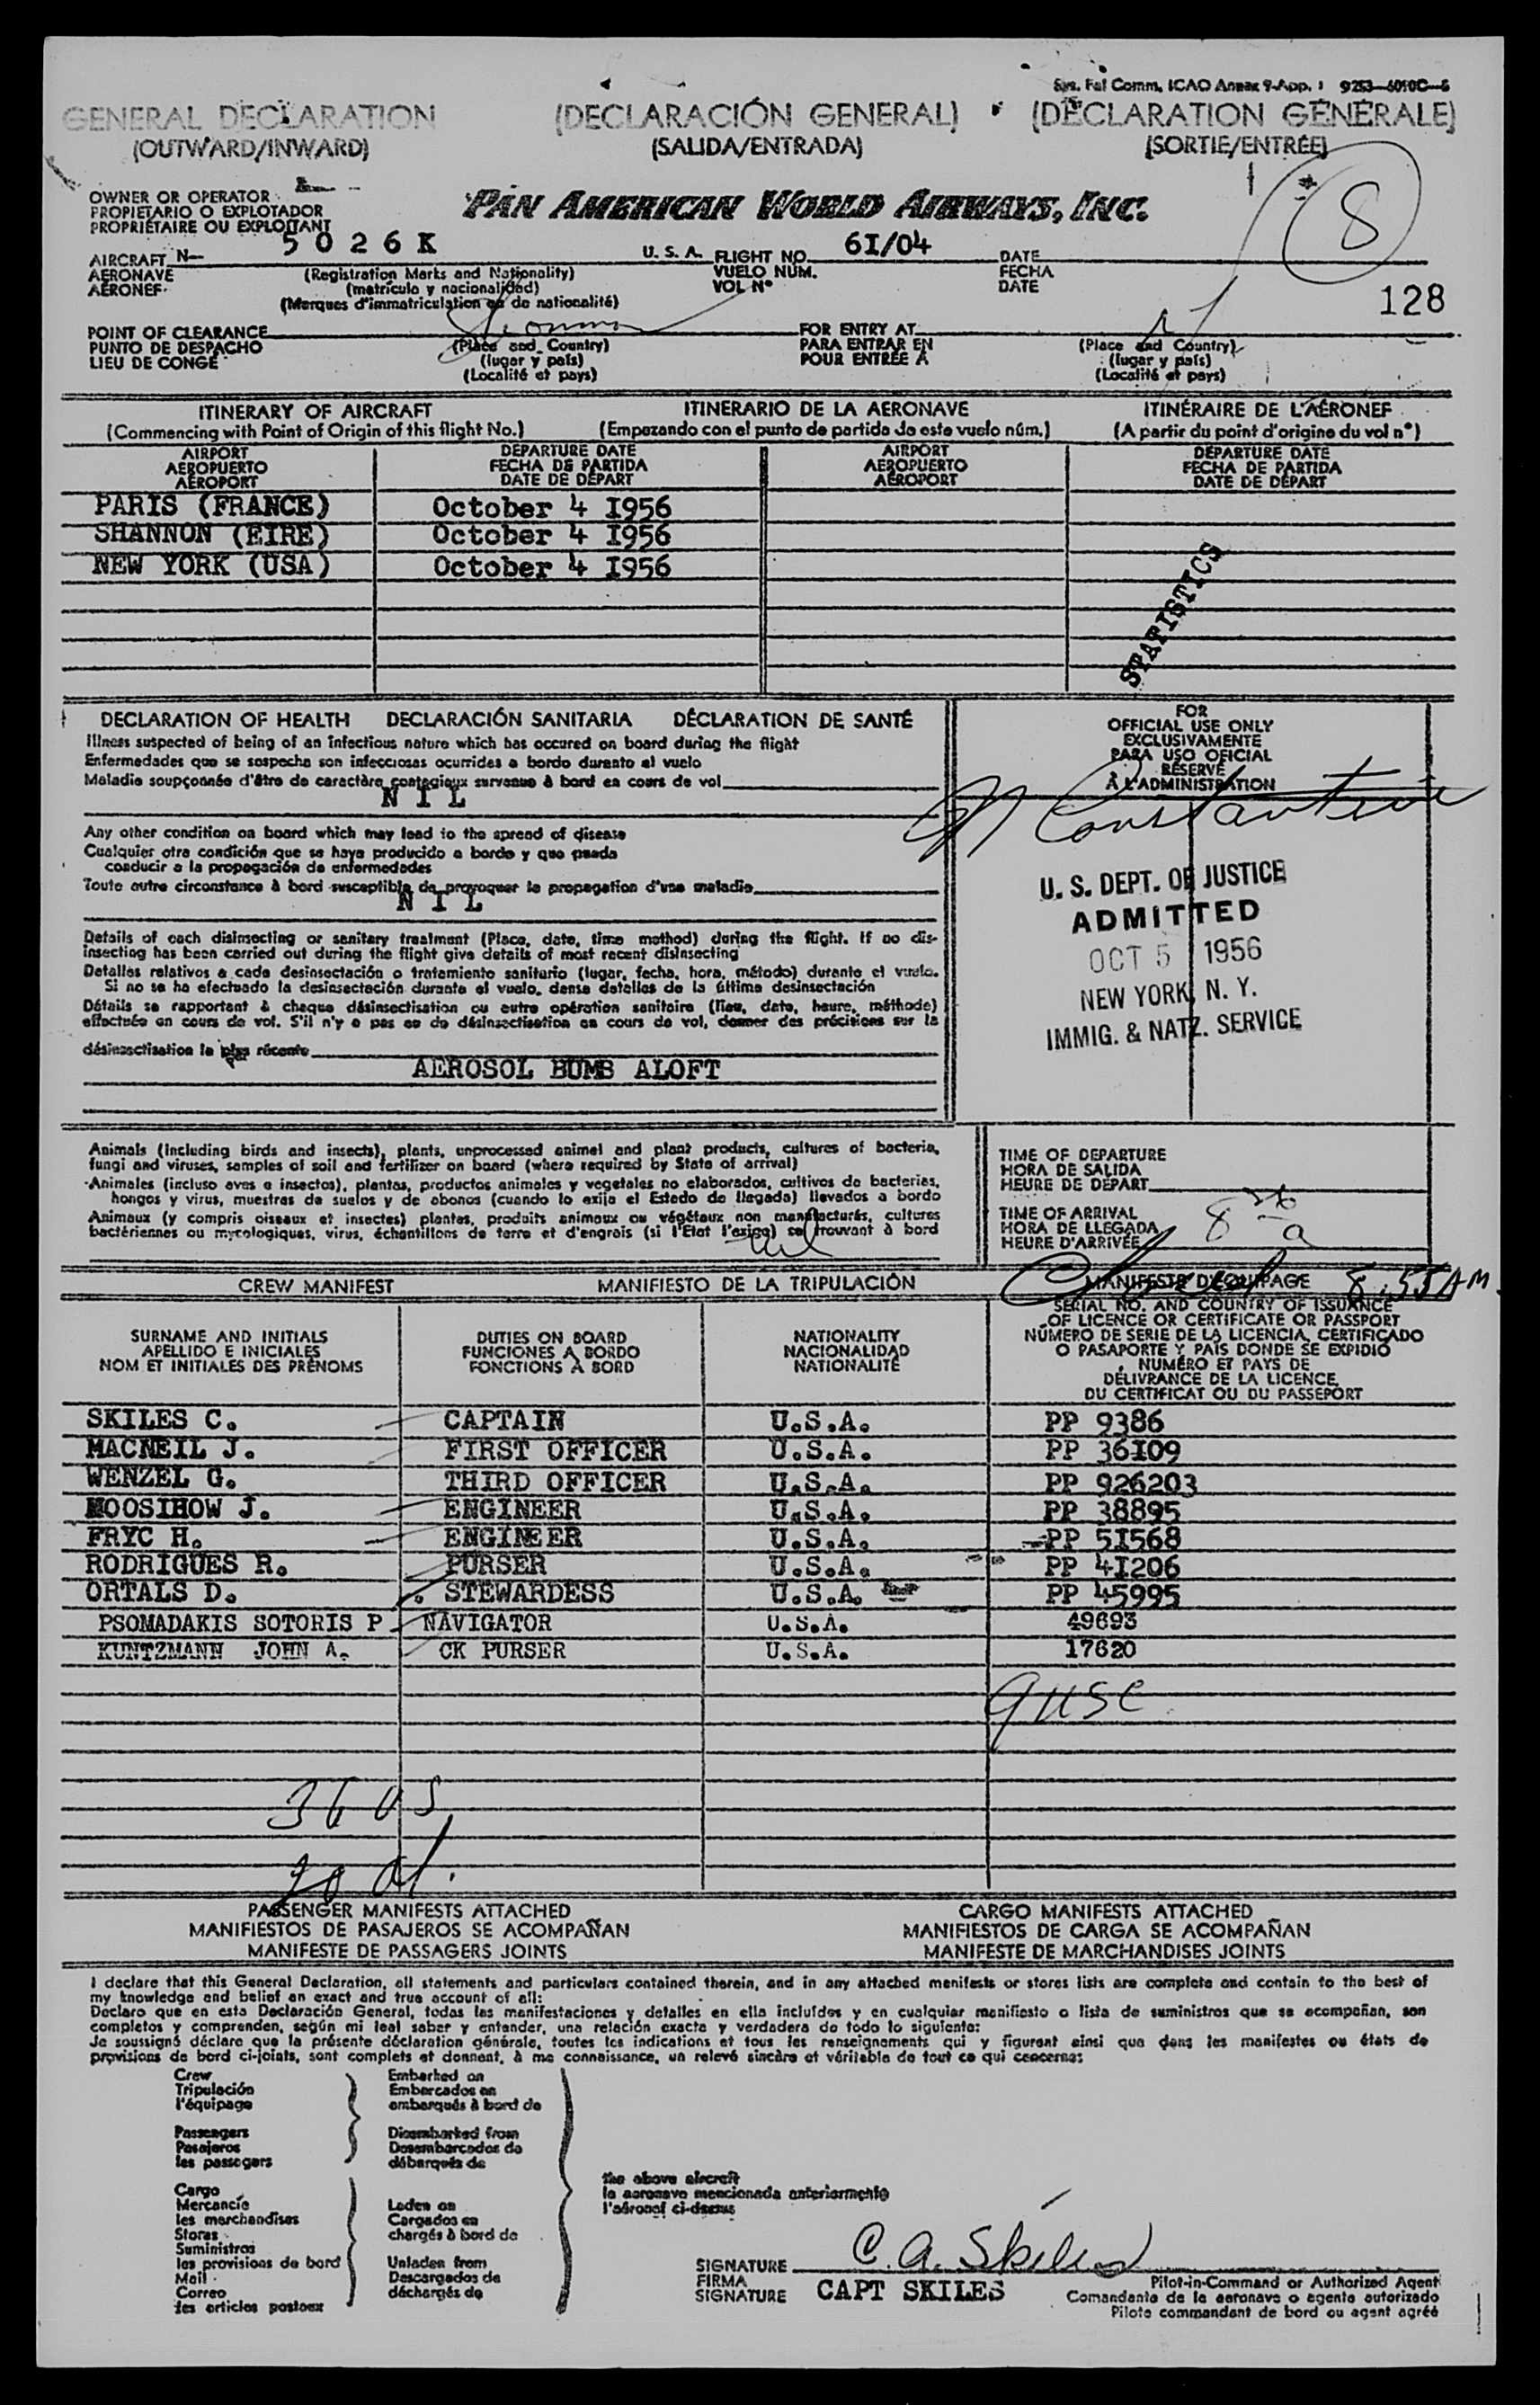 Sys. Fal Comm. ICAO Annex 9-App. 1 9253-6050C-6
GENERAL DECLARATION (DECLARACIÓN GENERAL) (DÉCLARATION GÉNÉRALE)
(OUTWARD/INWARD) (SALIDA/ENTRADA) (SORTIE/ENTRÉE)
OWNER OR OPERATOR
PROPIETARIO O EXPLOTADOR
PROPRIÉTAIRE OU EXPLOITANT
PAN AMERICAN WORLD AIRWAYS, INC.
8
AIRCRAFT N- 5026K U. S. A. FLIGHT NO. 6I/04 DATE
AERONAVE (Registration Marks and Nationality) VUELO NÚM. FECHA
AÉRONEF (matrícula y nacionalidad) VOL Nº DATE
(Marques d'immatriculation et de nationalité)
128
POINT OF CLEARANCE Shannon FOR ENTRY AT
PUNTO DE DESPACHO (Place and Country) PARA ENTRAR EN (Place and Country)
LIEU DE CONGÉ (lugar y país) POUR ENTRÉE À (lugar y país)
(Localité et pays) (Localité et pays)
ITINERARY OF AIRCRAFT ITINERARIO DE LA AERONAVE ITINÉRAIRE DE L'AÉRONEF
(Commencing with Point of Origin of this flight No.) (Empezando con el punto de partida de este vuelo núm.) (A partir du point d'origine du vol nº)
AIRPORT DEPARTURE DATE AIRPORT DEPARTURE DATE
AEROPUERTO FECHA DE PARTIDA AEROPUERTO FECHA DE PARTIDA
AÉROPORT DATE DE DÉPART AÉROPORT DATE DE DÉPART
PARIS (FRANCE) October 4 I956
SHANNON (EIRE) October 4 I956
NEW YORK (USA) October 4 I956
STATISTICS
DECLARATION OF HEALTH DECLARACIÓN SANITARIA DÉCLARATION DE SANTÉ
Illness suspected of being of an infectious nature which has occured on board during the flight
Enfermedades que se sospecha son infecciosas ocurridas a bordo durante el vuelo
Maladie soupçonnée d'être de caractère contagieux survenue à bord en cours de vol
N I L
Any other condition on board which may lead to the spread of disease
Cualquier otra condición que se haya producido a bordo y que pueda
conducir a la propagación de enfermedades
Toute autre circonstance à bord susceptible de provoquer la propagation d'une maladie
N I L
Details of each disinsecting or sanitary treatment (Place, date, time method) during the flight. If no dis-
insecting has been carried out during the flight give details of most recent disinsecting
Detalles relativos a cada desinsectación o tratamiento sanitario (lugar, fecha, hora, método) durante el vuelo.
Si no se ha efectuado la desinsectación durante el vuelo, dense detalles de la última desinsectación
Détails se rapportant à chaque désinsectisation ou autre opération sanitaire (lieu, date, heure, méthode)
effectuée en cours de vol. S'il n'y a pas eu de désinsectisation en cours de vol, donner des précisions sur la
désinsectisation la plus récente
AEROSOL BUMB ALOFT
FOR
OFFICIAL USE ONLY
EXCLUSIVAMENTE
PARA USO OFICIAL
RÉSERVÉ
À L'ADMINISTRATION
Constantine
U. S. DEPT. OF JUSTICE
ADMITTED
OCT 5 1956
NEW YORK, N. Y.
IMMIG. & NATZ. SERVICE
Animals (Including birds and insects), plants, unprocessed animal and plant products, cultures of bacteria,
fungi and viruses, samples of soil and fertilizer on board (where required by State of arrival)
Animales (incluso aves e insectos), plantas, productos animales y vegetales no elaborados, cultivos de bacterias,
hongos y virus, muestras de suelos y de abonos (cuando lo exija el Estado de llegada) llevados a bordo
Animaux (y compris oiseaux et insectes) plantes, produits animaux ou végétaux non manufacturés, cultures
bactériennes ou mycologiques, virus, échantillons de terre et d'engrais (si l'Etat l'exige) se trouvant à bord
Nil
TIME OF DEPARTURE
HORA DE SALIDA
HEURE DE DÉPART
TIME OF ARRIVAL
HORA DE LLEGADA
HEURE D'ARRIVÉE
CREW MANIFEST MANIFIESTO DE LA TRIPULACIÓN MANIFESTE D'ÉQUIPAGE 8:55 AM.
SURNAME AND INITIALS
APELLIDO E INICIALES
NOM ET INITIALES DES PRÉNOMS
DUTIES ON BOARD
FUNCIONES A BORDO
FONCTIONS À BORD
NATIONALITY
NACIONALIDAD
NATIONALITÉ
SERIAL NO. AND COUNTRY OF ISSUANCE
OF LICENCE OR CERTIFICATE OR PASSPORT
NÚMERO DE SERIE DE LA LICENCIA, CERTIFICADO
O PASAPORTE Y PAÍS DONDE SE EXPIDIÓ
NUMÉRO ET PAYS DE
DÉLIVRANCE DE LA LICENCE
DU CERTIFICAT OU DU PASSEPORT
SKILES C. CAPTAIN U.S.A. PP 9386
MACNEIL J. FIRST OFFICER U.S.A. PP 36I09
WENZEL G. THIRD OFFICER U.S.A. PP 926203
MOOSIHOW J. ENGINEER U.S.A. PP 38895
FRYC H. ENGINEER U.S.A. PP 5I568
RODRIGUES R. PURSER U.S.A. PP 4I206
ORTALS D. STEWARDESS U.S.A. PP 45995
PSOMADAKIS SOTORIS P NAVIGATOR U.S.A. 49693
KUNTZMANN JOHN A. CK PURSER U.S.A. 17620
9 USC
36 US
20 al.
PASSENGER MANIFESTS ATTACHED CARGO MANIFESTS ATTACHED
MANIFIESTOS DE PASAJEROS SE ACOMPAÑAN MANIFIESTOS DE CARGA SE ACOMPAÑAN
MANIFESTE DE PASSAGERS JOINTS MANIFESTE DE MARCHANDISES JOINTS
I declare that this General Declaration, all statements and particulars contained therein, and in any attached manifests or stores lists are complete and contain to the best of
my knowledge and belief an exact and true account of all:
Declaro que en esta Declaración General, todas las manifestaciones y detalles en ella incluídos y en cualquier manifiesto o lista de suministros que se acompañan, son
completos y comprenden, según mi leal saber y entender, una relación exacta y verdadera de todo lo siguiente:
Je soussigné déclare que la présente déclaration générale, toutes les indications et tous les renseignements qui y figurent ainsi que dans les manifestes ou états de
provisions de bord ci-joints, sont complets et donnent, à ma connaissance, un relevé sincère et véritable de tout ce qui concerne:
Crew Embarked on
Tripulación Embarcados en
l'équipage embarqués à bord de
Passengers Disembarked from
Pasajeros Desembarcados de
les passagers débarqués de
the above aircraft
la aeronave mencionada anteriormente
l'aéronef ci-dessus
Cargo
Mercancía Laden on
les marchandises Cargados en
Stores chargés à bord de
Suministros
les provisions de bord Unladen from
Mail Descargados de
Correo déchargés de
les articles postaux
SIGNATURE C. A. Skiles
FIRMA
SIGNATURE CAPT SKILES
Pilot-in-Command or Authorized Agent
Comandante de la aeronave o agente autorizado
Pilote commandant de bord ou agent agréé